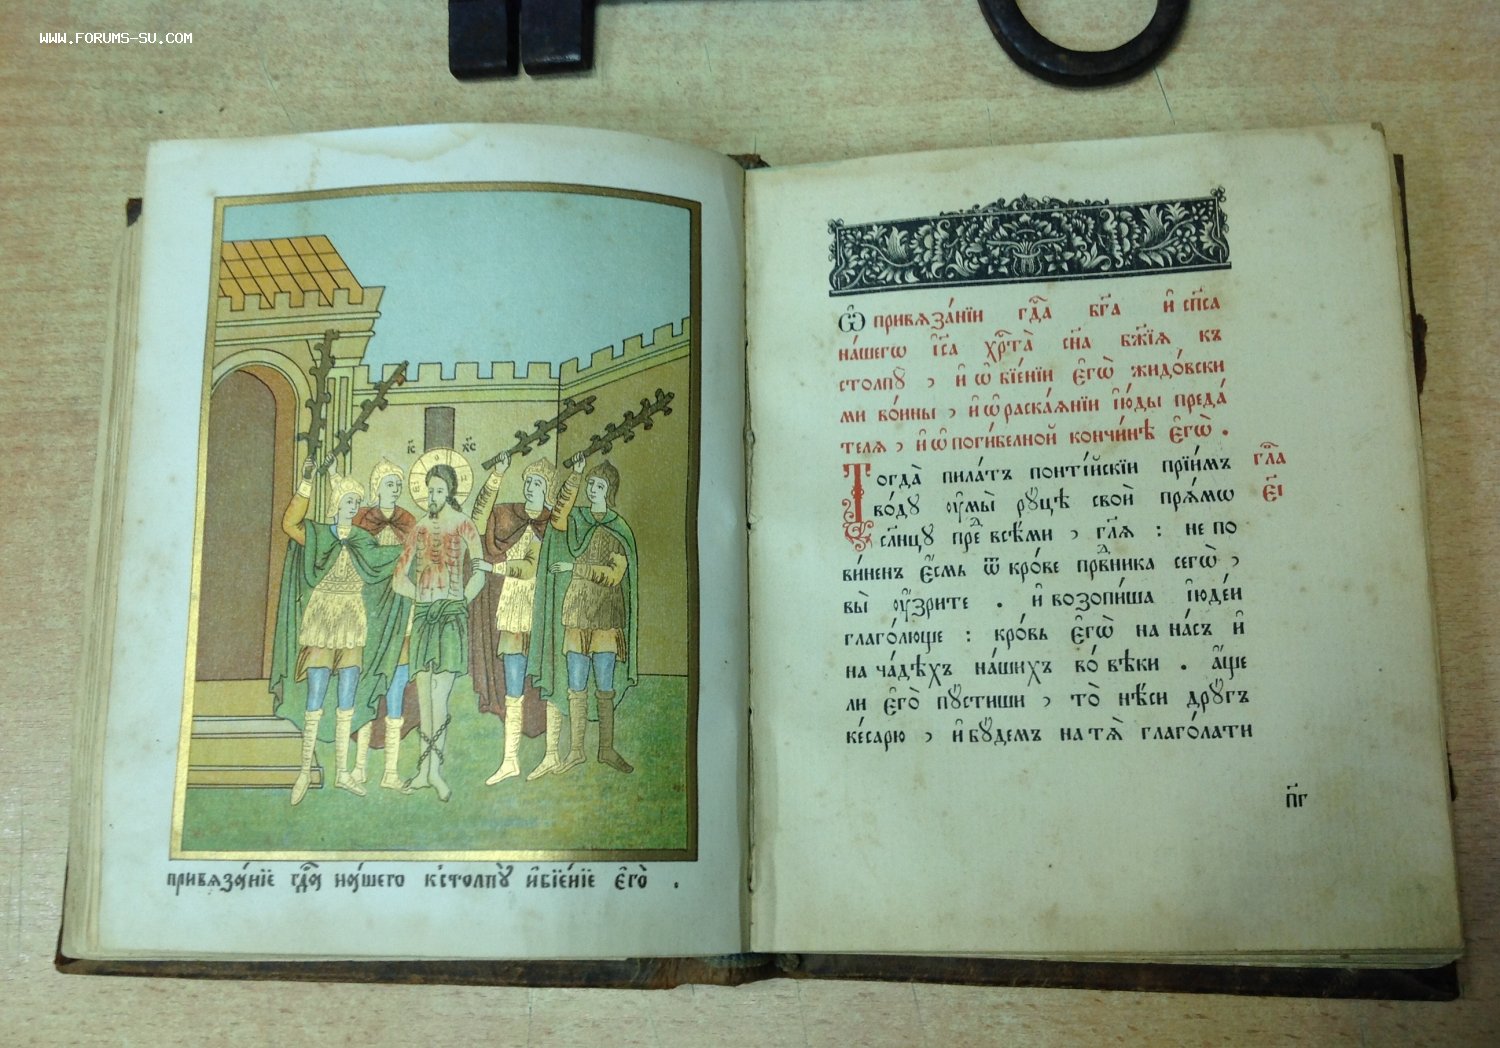 WWW.FORUMS-SU.COM
і҃с х҃с
привѧза́нїе гдⷭ҇а на́шего к̾столпꙋ̀ и҆бїе́нїе є҆гѡ̀ .
Ѽ привѧза́нїи гдⷭ҇а бг҃а и҆ сп҃са
на́шегѡ і҆и҃са хрⷭ҇та̀ сн҃а бж҃їѧ къ
столпꙋ̀ , и҆ ѡ҆ бїе́нїи є҆гѡ̀ жидо́вски
ми во́ины , и҆ ѡ҆ раска́ѧнїи і҆ю́ды преда́
телѧ , и҆ ѡ҆ поги́белной кончи́нѣ є҆гѡ̀ .
Тогда̀ пила́тъ понті́йскїи прїи́мъ
во́дꙋ ᲂу҆мы̀ рꙋцѣ своѝ прѧ́мѡ
сл҃нцꙋ преⷣ все́ми , гл҃ѧ : не по
ви́ненъ є҆́смь ѿ кро́ве првⷣника сегѡ̀ ,
вы̀ ᲂу҆́зрите . и҆ возопи́ша і҆юде́и
глаго́люще : кро́вь є҆гѡ̀ на на́съ и҆
на ча́дѣхъ на́шихъ во́ вѣки . а҆́ще
ли є҆го̀ пꙋ́стиши , то̀ нѣ́си дрꙋ́гъ
ке́сарю , и҆ бꙋ́демъ на тѧ̀ глаго́лати
гл҃а
є҃і
п҃г